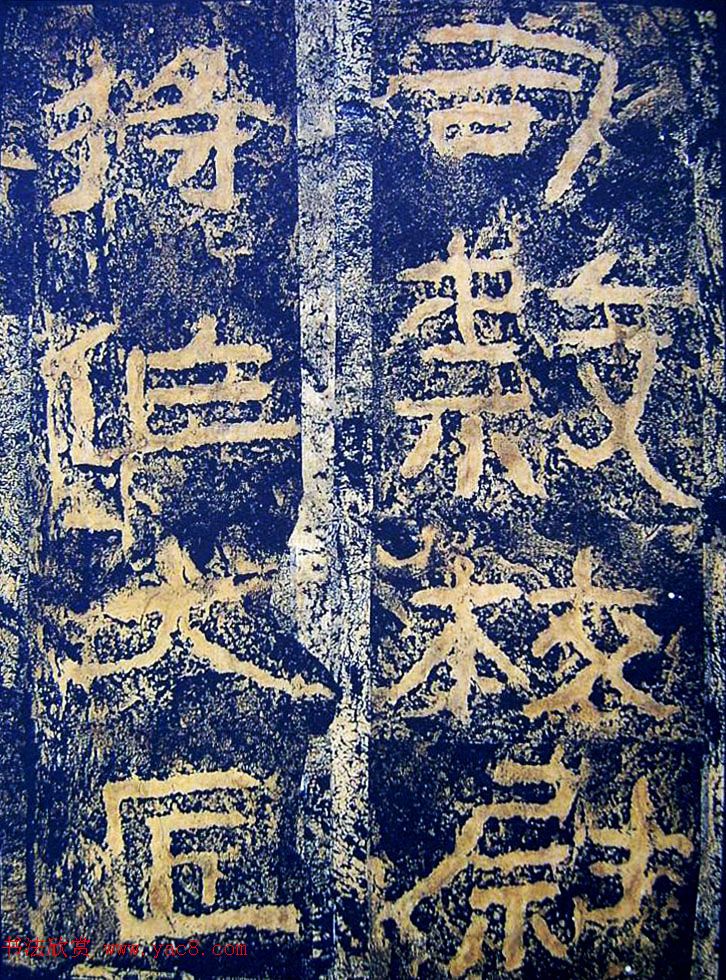 司隸校尉
將作大匠
书法欣赏 www.yac8.com